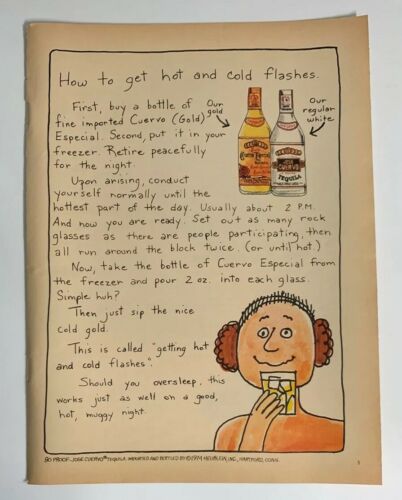 How to get hot and cold flashes.
First, buy a bottle of
fine imported Cuervo (Gold)
Especial. Second, put it in your
freezer. Retire peacefully
for the night.
Our
gold
Our
regular
white
CUERVO
TEQUILA
Upon arising, conduct
yourself normally until the
hottest part of the day. Usually about 2 P.M.
And now you are ready. Set out as many rock
glasses as there are people participating, then
all run around the block twice. (or until hot.)
Now, take the bottle of Cuervo Especial from
the freezer and pour 2 oz. into each glass.
Simple huh?
Then just sip the nice
cold gold.
This is called "getting hot
and cold flashes".
Should you oversleep, this
works just as well on a good,
hot, muggy night.
80 PROOF. JOSE CUERVO® TEQUILA. IMPORTED AND BOTTLED BY ©1974 HEUBLEIN, INC., HARTFORD, CONN.